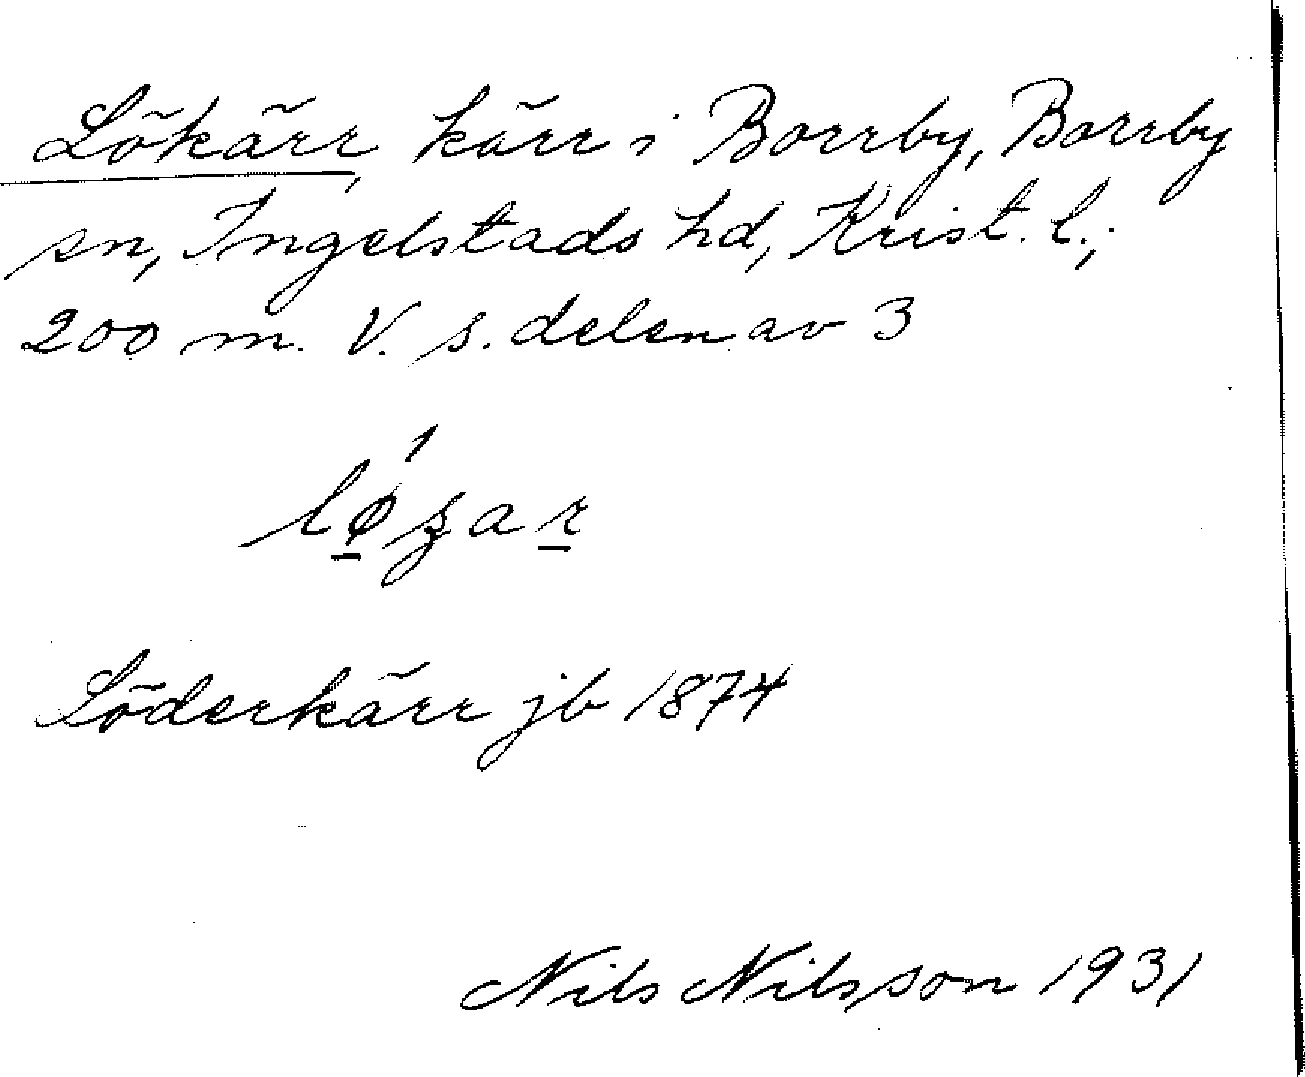 Lökärr, kärr i Borrby, Borrby
sn, Ingelstads hd, Krist. l.;
200 m. V. s. delen av 3
Söderkärr jb 1874
Nils Nilsson 1931